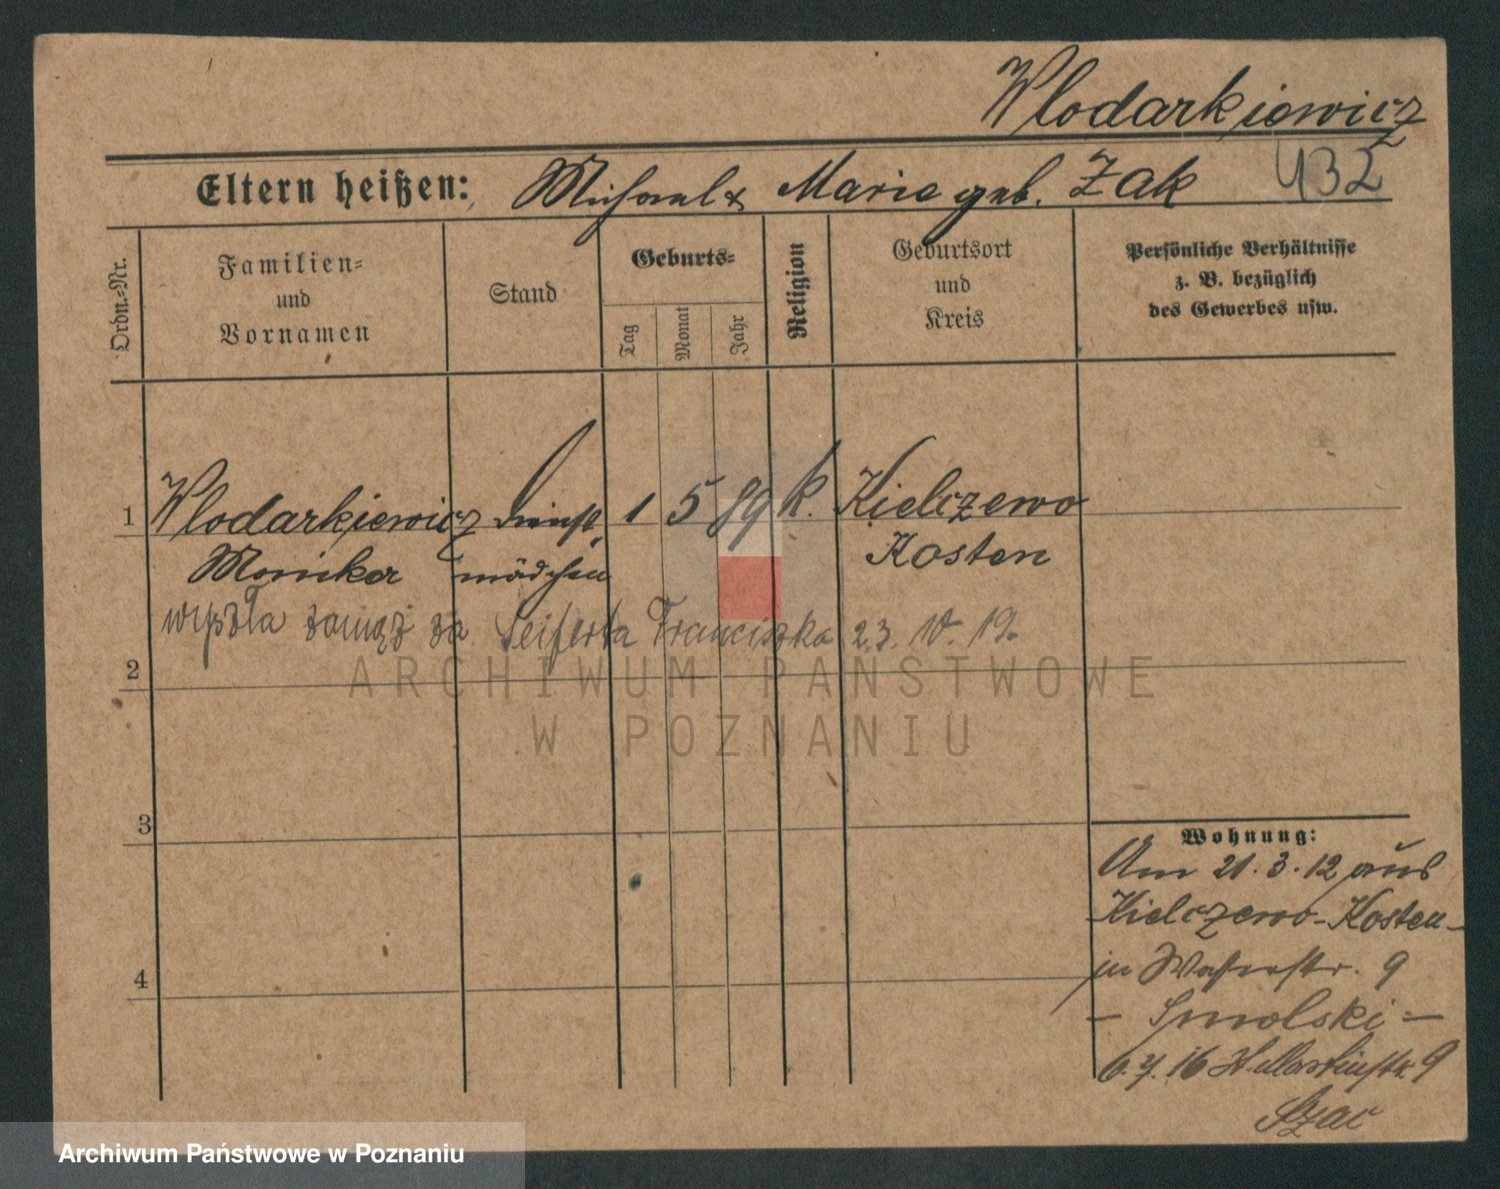 Wlodarkiewicz
Eltern heißen: Michael & Marie geb. Zak 432
Ordn.-Nr.
Familien-
und
Vornamen
Stand
Geburts-
Tag
Monat
Jahr
Religion
Geburtsort
und
Kreis
Persönliche Verhältnisse
z. B. bezüglich
des Gewerbes usw.
1 Wlodarkiewicz Dienst 1 5 89 k. Kielczewo
Monika mädchen Kosten
wyszła zamąż za Seiferta Franciszka 23. IV. 19.
2
ARCHIWUM PAŃSTWOWE
W POZNANIU
3
Wohnung:
Am 21.3.12 aus
Kielczewo-Kosten
in Wasserstr. 9
- Smolski -
4
6.7.16 St. Martinstr. 9
Archiwum Państwowe w Poznaniu